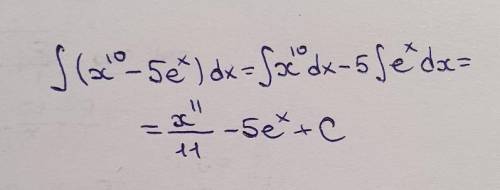 ∫(x¹⁰ - 5eˣ) dx = ∫x¹⁰ dx - 5∫eˣ dx =
= x¹¹/11 - 5eˣ + C